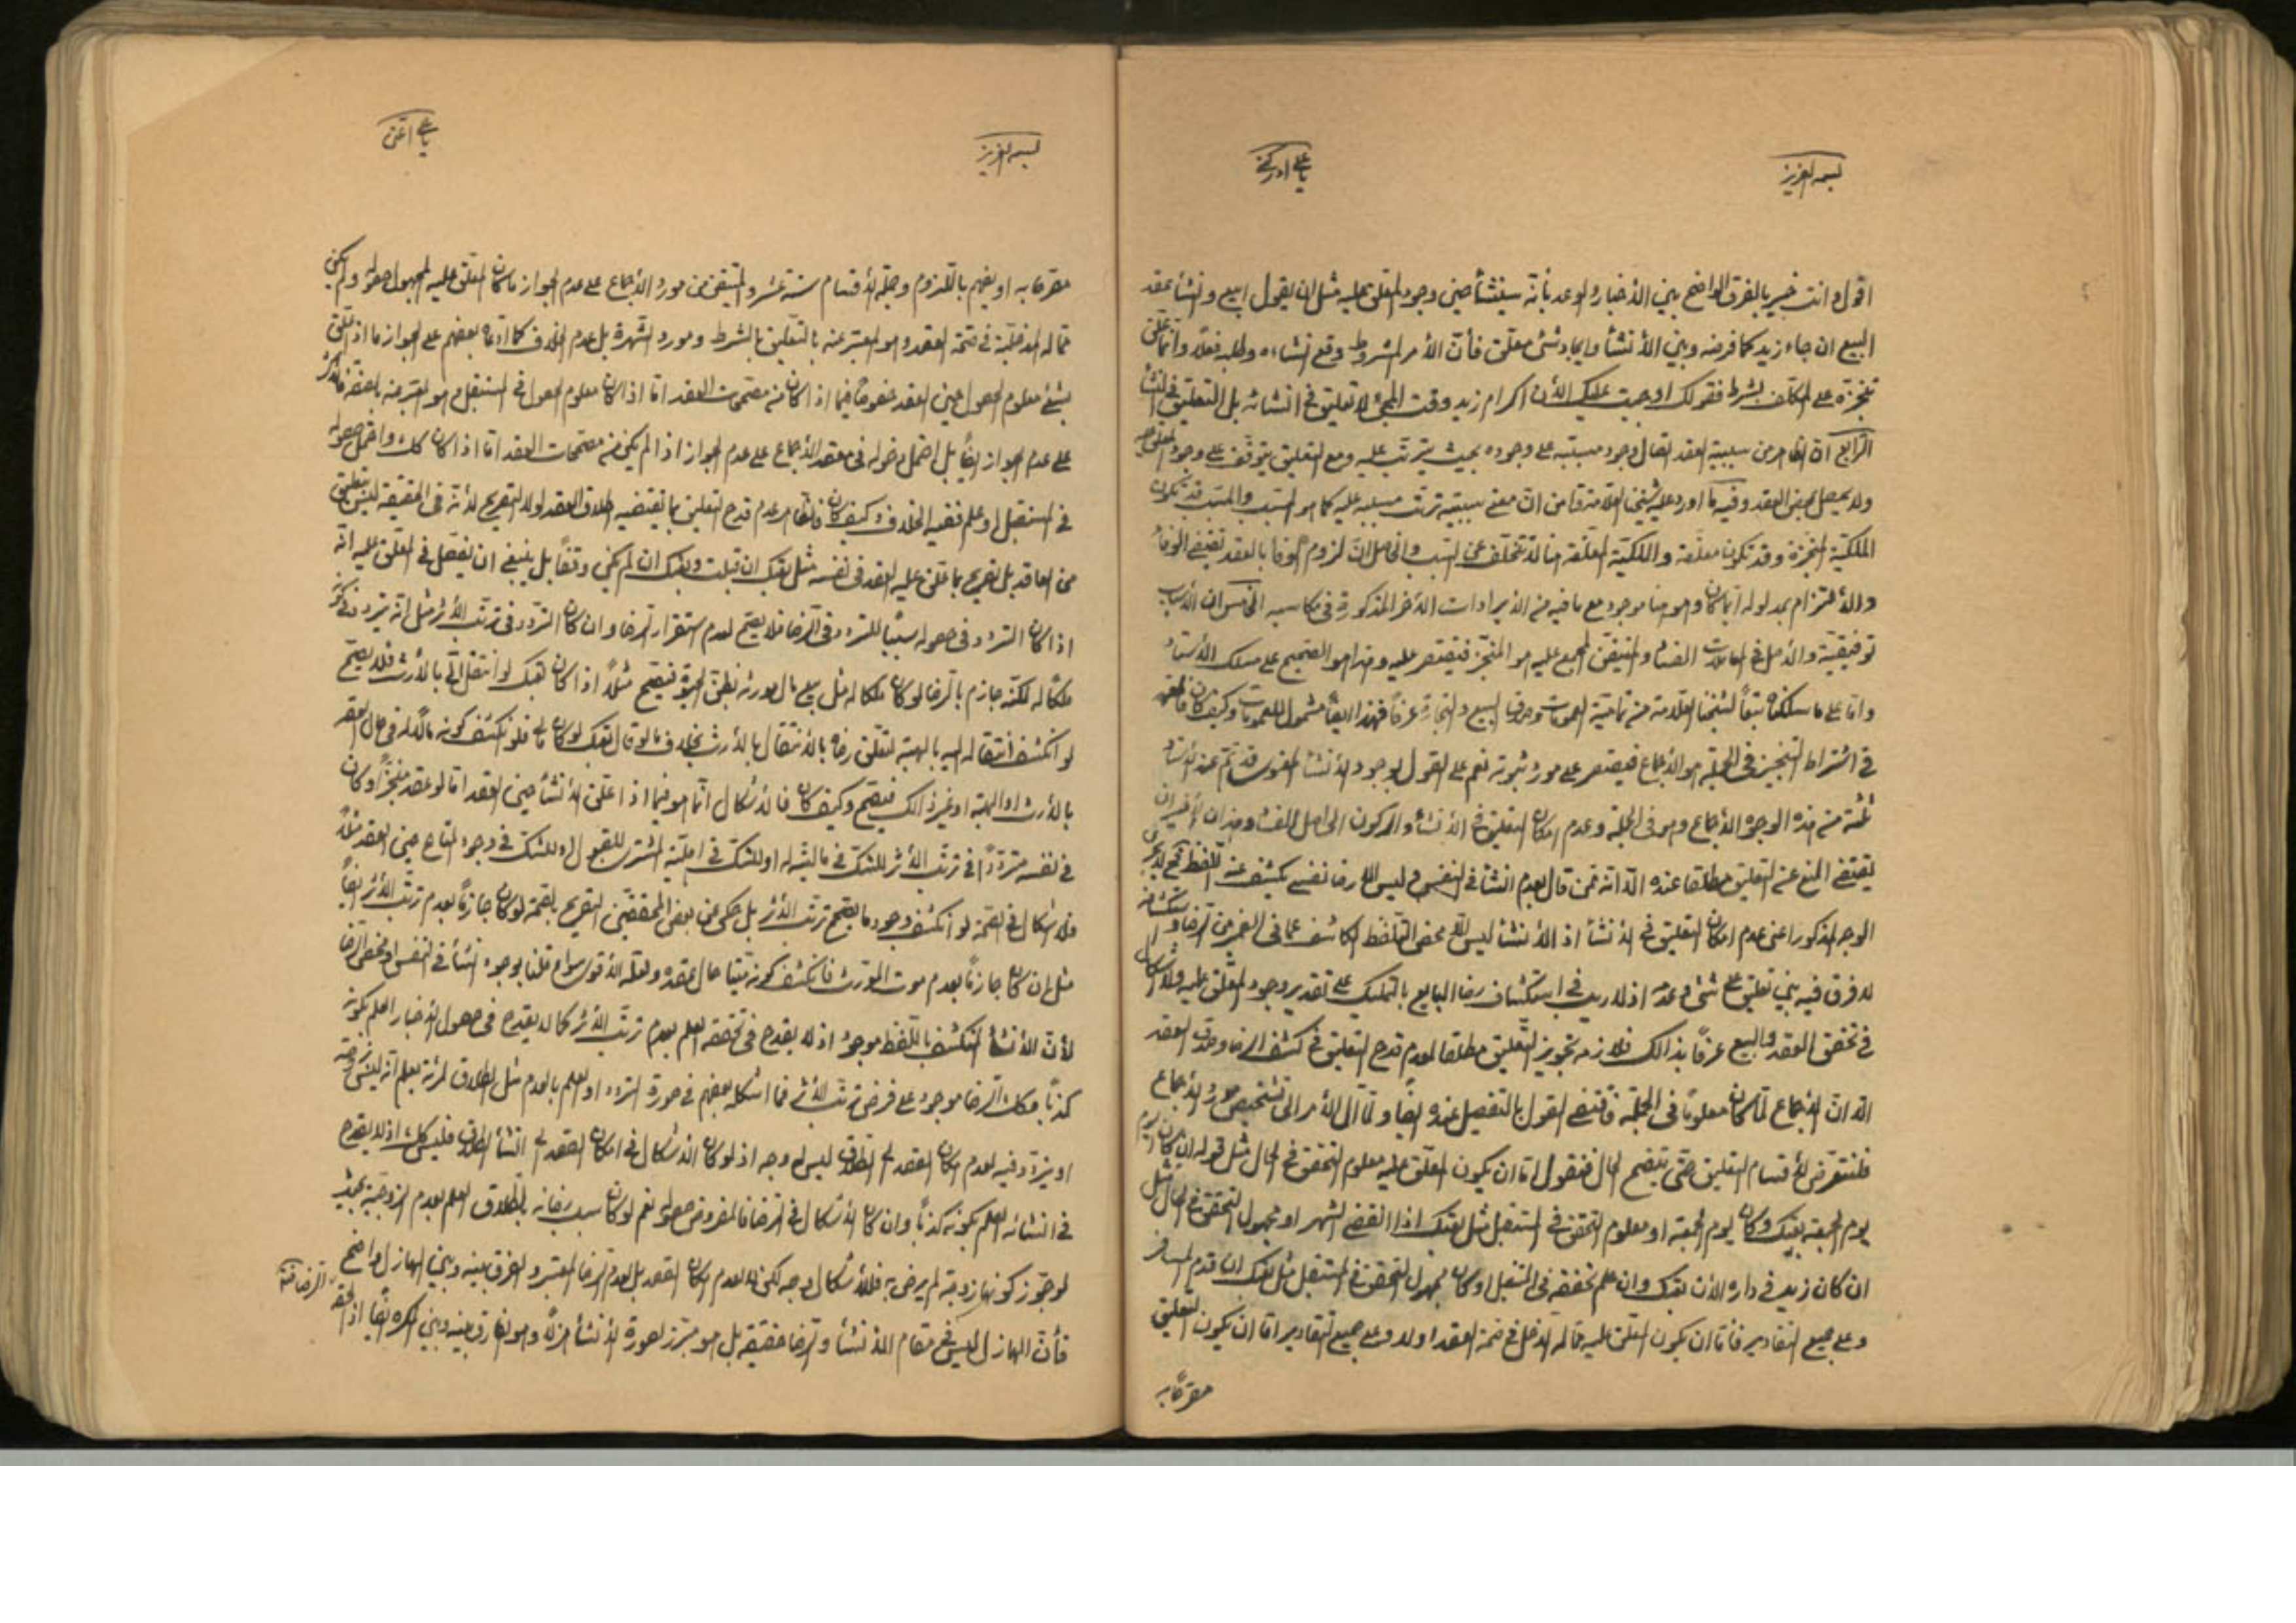 بسمه العزيز
يا علي ادركني
اقول وانت خبير بالفرق الواضح بين الأخبار والوعد بأنه سينشأ حين وجود المعلق عليه مثل ان يقول ابيع وانشأ عقد
البيع ان جاء زيد كما فرضه وبين الأنشأ وايجاد شئ معلق فأن الأمر المشروط وقع انشاءه وطلبه فعلا وانما تعلق
تنجزه على المكلف بشرط فقولك اوجبت عليك الأن اكرام زيد وقت المجئ لا تعليق في انشائه بل التعليق في المنشأ
الرابع ان الظاهر من سببية العقد اتصال وجود مسببه على وجوده بحيث يترتب عليه ومع التعليق يتوقف على وجود المعلق عليه
ولا يحصل بمحض العقد وفيه ما اورد عليه شيخنا العلامة من ان معنى سببيته ترتب مسببه عليه كما هو المسبب والمسبب قد تكون
الملكية المنجزة وقد تكون معلقة والملكية المعلقة هنا لا تتخلف عن السبب والحاصل ان لزوم الوفا بالعقد تقتضى الوفاء
والألتزام بمدلوله ايا ما كان وهو هنا موجود مع ما فيه من الايرادات الأخر المذكورة في مكاسبه الخامس ان الأسباب
توقيفية والأصل في المعاملات الفساد والمتيقن المجمع عليه هو المنجز فيقتصر عليه وهذا هو الصحيح على مسلك الأستاد
واما على ما سلكناه تبعاً لشيخنا العلامة من تمامية العمومات وصدق البيع والتجارة عرفاً فهذا ايضاً مشمول للعمومات وكيف كان فالعمدة
في اشتراط التنجيز في الجملة هو الأجماع فيقتصر على مورد ثبوته نعم على القول بوجود الأنشأ النفوس قد تم عند الأستاد
ثلثة من هذه الوجوه الأجماع وهو في الجملة وعدم امكان التعليق في الأنشأ والركون الى اصل الفساد وهذان الأخيران
يقتضي المنع عن التعليق مطلقا عنده الا انه فمن قال بعدم انشأ في النفس وليس الا رضا نفسي يكشف عنه اللفظ فح لا يجري
الوجه المذكور اعنى عدم امكان التعليق في الأنشأ اذ الأنشأ ليس الا محض التلفظ الكاشف عما في الضمير من الرضا واستكشافه
لا فرق فيه بين تعليقه على شئ وعدمه اذ لا ريب في استكشاف رضا البايع بالتمليك على تقدير وجود المعلق عليه ولا اشكال
في تحقق العقد والبيع عرفاً بذالك فلازمه تجويز التعليق مطلقا لعدم قدح التعليق في كشف الرضا وصدق العقد
الا ان الأجماع لما كان معلوماً في الجملة فاقتضى القول بالتفصيل عنده ايضاً ولما آل الأمر الى تشخيص مورد الأجماع
فلنتعرض لأقسام التعليق حتى يتضح الحال فنقول اما ان يكون المعلق عليه معلوم التحقق في الحال مثل قوله ان كان اليوم
يوم الجمعة بعتك وكان يوم الجمعة او معلوم التحقق في المستقبل مثل بعتك اذا انقضى الشهر او مجهول التحقق في الحال مثل
ان كان زيد في داره الأن بعتك وان علم تحققه في المستقبل او كان مجهول التحقق في المستقبل مثل بعتك ان قدم المسافر
وعلى جميع التقادير فاما ان يكون المعلق عليه مما له الدخل في صحة العقد او لا وعلى جميع التقادير اما ان يكون التعليق
مصرحاً به
بسمه العزيز
يا علي اغثني
مصرحا به او يفهم باللزوم وجملة الأقسام ستة عشر والمتيقن من مورد الأجماع على عدم الجواز ما كان المعلق عليه المجهول حصوله ولم يكن
مما له المدخلية في صحة العقد وهو المعتبر عنه بالتعليق بالشرط ومورد الشهرة بل عدم الخلاف كما ادعاه بعضهم على الجواز ما اذا تعلق
بشئ معلوم الحصول حين العقد خصوصاً فيما اذا كان من مصححات العقد اما اذا كان معلوم الحصول في المستقبل وهو المعتبر عنه بالصفة
على عدم الجواز ايضاً بل احتمل دخوله في معقد الأجماع على عدم الجواز اذا لم يكن من مصححات العقد اما اذا كان كك واحتمل حصوله
في المستقبل او علم ففيه الخلاف وكيف كان فالظاهر عدم قدح التعليق بما يقتضيه اطلاق العقد لولا التصريح لأنه في الحقيقة ليس بتعليق
من العاقد بل تصريح بما علق عليه العقد في نفسه مثل بعتك ان قبلت وبعتك ان لم يكن وقفاً بل ينبغي ان يفصل في المعلق عليه انه
اذا كان التردد في حصوله سبباً للتردد في الرضا فلا يصح لعدم استقرار الرضا وان كان التردد في ترتب الأثر مثل انه يتردد في كونه
ملكاً له لكنه جازم بالرضا لو كان ملكا له مثل بيع مال مورثه بظن الحيوة فيصح مثلاً اذا كان بعتك لو انتقل الى بالأرث فلا يصح
لو انكشف انتقاله اليه بالهبة لتعلق رضاه بالأنتقال بالأرث بخلاف ما لو قال بعتك لو كان لي فلو انكشف كونه مالكا له في حال العقد
بالأرث او الهبة او غير ذالك فيصح وكيف كان فالأشكال انما هو فيما اذا علق الأنشأ حين العقد اما لو عقد منجزاً وكان
في نفسه متردداً في ترتب الأثر للشك في ماليته او للشك في اهلية المشترى للقبول او للشك في وجود المتاع حين العقد مثلاً
فلا اشكال في الصحة لو انكشف وجود ما يصحح ترتب الأثر بل حكى عن بعض المحققين التصريح بالصحة لو كان جازماً بعدم ترتب الأثر ايضاً
مثل ان كان جازماً بعدم موت المورث فانكشف كونه ميتا حال عقده ولعله الأقوى سواء قلنا بوجود انشأ في النفس او محض الرضا
لأن الأنشأ المنكشف باللفظ موجود اذ لا يقدح في تحققه العلم بعدم ترتب الأثر كما لا يقدح في حصول الأخبار العلم بكونه
كذباً وكك الرضا موجود على فرض ترتب الأثر فما اشكله بعضهم في صورة التردد او العلم بالعدم مثل الطلاق لمرئة يعلم انه ليس زوجته
او يتردد فيه لعدم امكان القصد الى الطلاق ليس له وجه اذ لو كان الأشكال في امكان القصد الى انشأ الطلاق فليس كك اذ لا يقدح
في انشائه العلم بكونه كذباً وان كان الأشكال في الرضا فالمفروض حصوله نعم لو كان سبب رضائه بالطلاق العلم بعدم الزوجية بحيث
لو جوز كونها زوجة لم يرض به فللأشكال وجه لكن لا لعدم امكان القصد بل لعدم الرضا المعتبر والفرق بينه وبين الهازل واضح
فأن الهازل ليس في مقام الأنشأ والرضا حقيقة بل هو مبرز لصورة الأنشأ هزلا وهو الفارق بينه وبين المكره ايضاً اذ